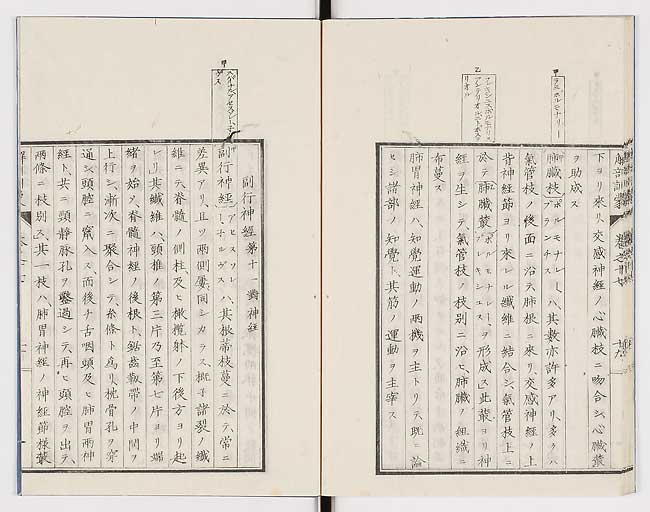 甲
ラミポルモナリー
乙
プレキシュスポルモナリス
アンテリオルエトポステ
リオル
下ヨリ來リ交感神經ノ心臟枝ニ吻合シ心臟叢
ヲ助成ス
肺臟枝ポルモナレーブランチスハ其數亦許多アリ多クハ
氣管枝ノ後面ニ沿テ肺根ニ來リ交感神經ノ上
背神經節ヨリ來レル纖維ニ結合シ氣管枝上ニ
於テ肺臟叢ポルモナレーゼプレキシュスヲ形成ス此叢ヨリ神
經ヲ生シテ氣管枝ノ枝別ニ沿ヒ肺臟ノ組織ニ
布蔓ス
肺胃神經ハ知覺運動ノ兩機ヲ主トリテ既ニ論
セシ諸部ノ知覺ト其筋ノ運動ヲ主宰ス
甲
副行神經第十一對神經
副行神經アセスソレートルヴスハ其根蒂枝蔓ニ於テ常ニ
差異アリ且ツ兩側屢同シカラス概子諸裂ノ纖
維ニテ脊髓ノ側柱及ヒ橄欖躰ノ下後方ヨリ起
レリ其纖維ハ頸椎ノ第三片乃至第七片ヨリ端
緒ヲ始メ脊髓神經ノ後根ト鋸齒靱帶ノ中間ヲ
上行シ漸次ニ聚合シテ糸條ト爲リ枕骨孔ヲ穿
通シ頭腔ニ竄入ス而後チ舌咽頭及ヒ肺胃兩神
經ト共ニ頸靜脈孔ヲ鑿過シテ再ヒ頭腔ヲ出テ
兩條ニ枝別ス其一枝ハ肺胃神經ノ神經節樣叢